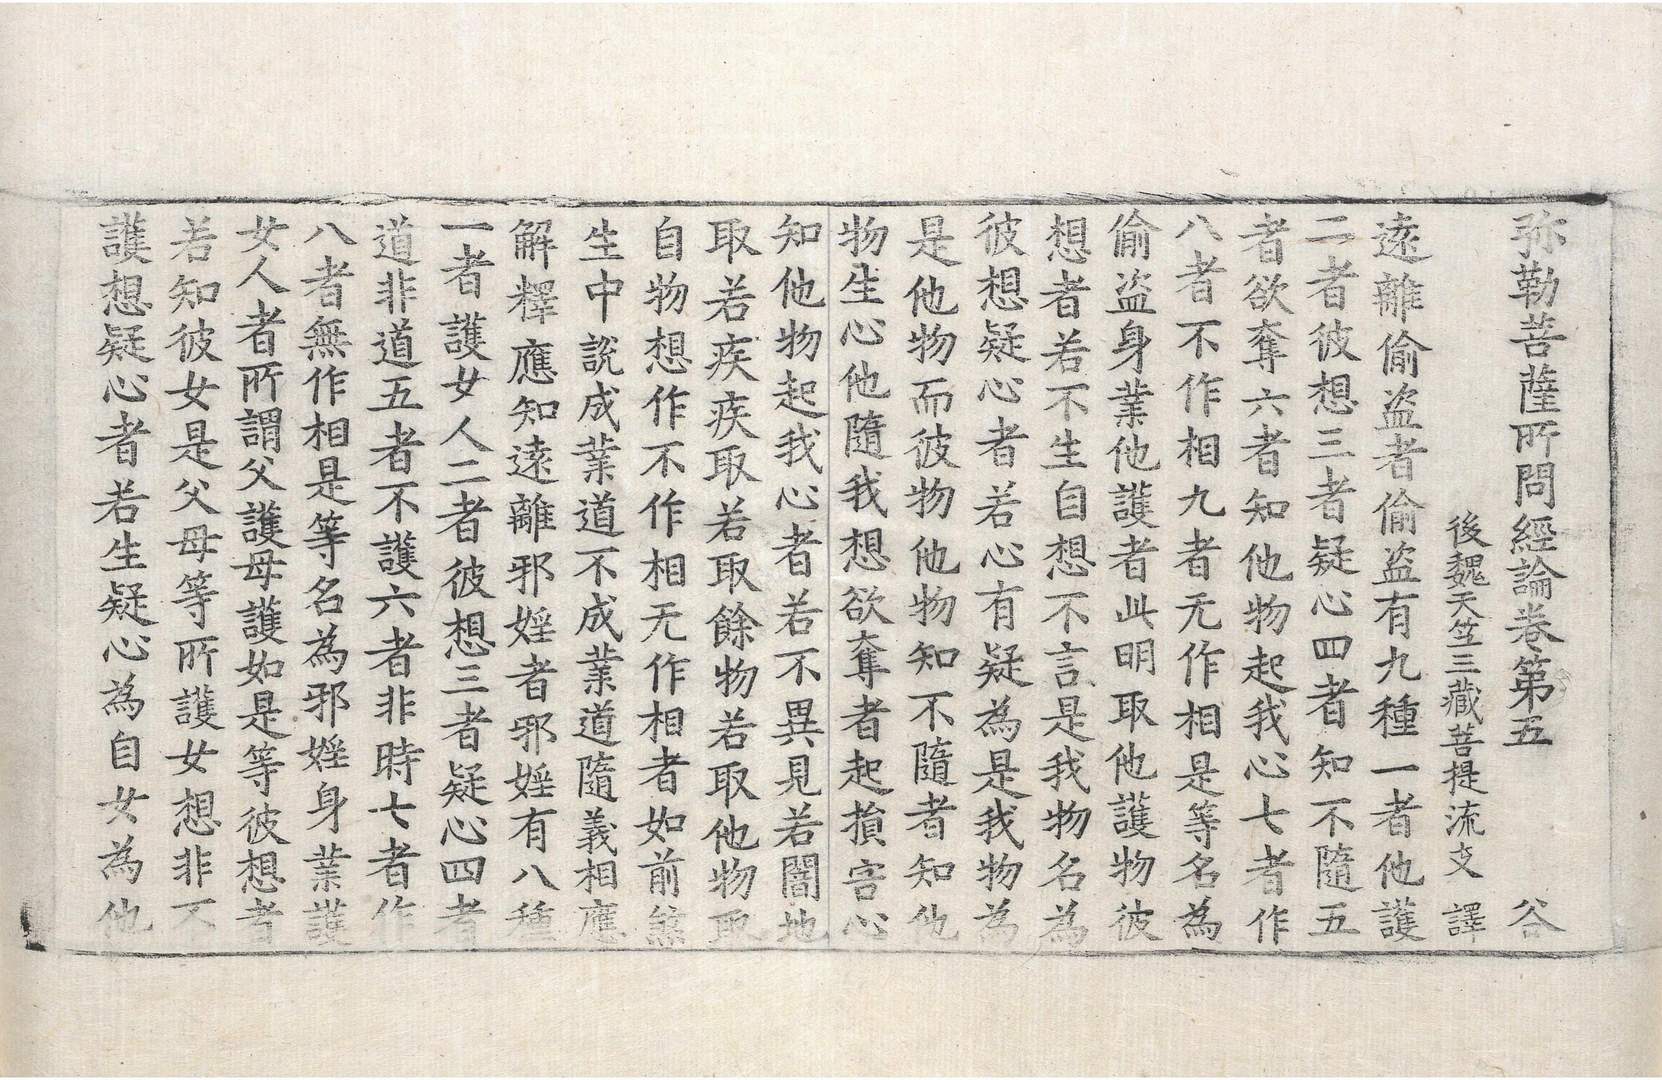 弥勒菩薩所問經論卷第五 谷
後魏天竺三藏菩提流支 譯
遠離偷盜者偷盜有九種一者他護
二者彼想三者疑心四者知不隨五
者欲奪六者知他物起我心七者作
八者不作相九者无作相是等名為
偷盜身業他護者此明取他護物彼
想者若不生自想不言是我物名為
彼想疑心者若心有疑為是我物為
是他物而彼物他物知不隨者知他
物生心他隨我想欲奪者起損害心
知他物起我心者若不異見若闇地
取若疾疾取若取餘物若取他物取
自物想作不作相无作相者如前煞
生中說成業道不成業道隨義相應
解釋應知遠離邪婬者邪婬有八種
一者護女人二者彼想三者疑心四者
道非道五者不護六者非時七者作
八者無作相是等名為邪婬身業護
女人者所謂父護母護如是等彼想者
若知彼女是父母等所護女想非不
護想疑心者若生疑心為自女為他